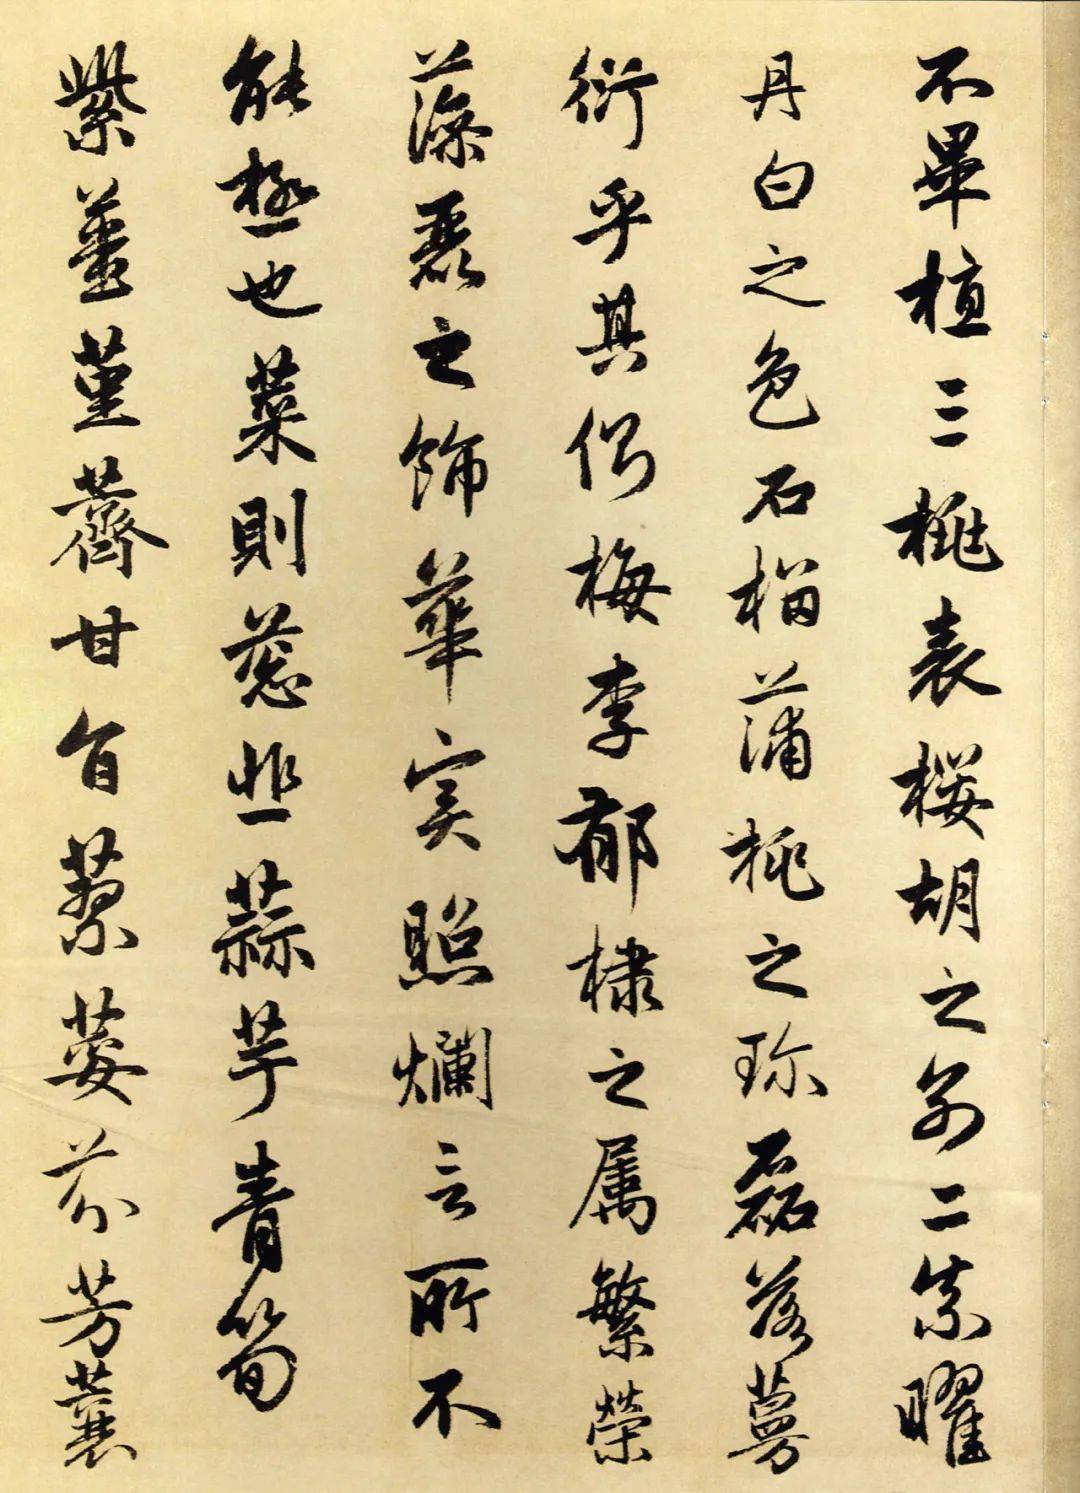 不畢植三桃表櫻胡之別二柰曜
丹白之色石榴蒲桃之珍磊落蔓
衍乎其側梅李郁棣之属繁榮
藻麗之飾華实照爛言所不
能極也菜則葱韭蒜芋青筍
紫薑堇薺甘旨蓼荽芬芳蘘